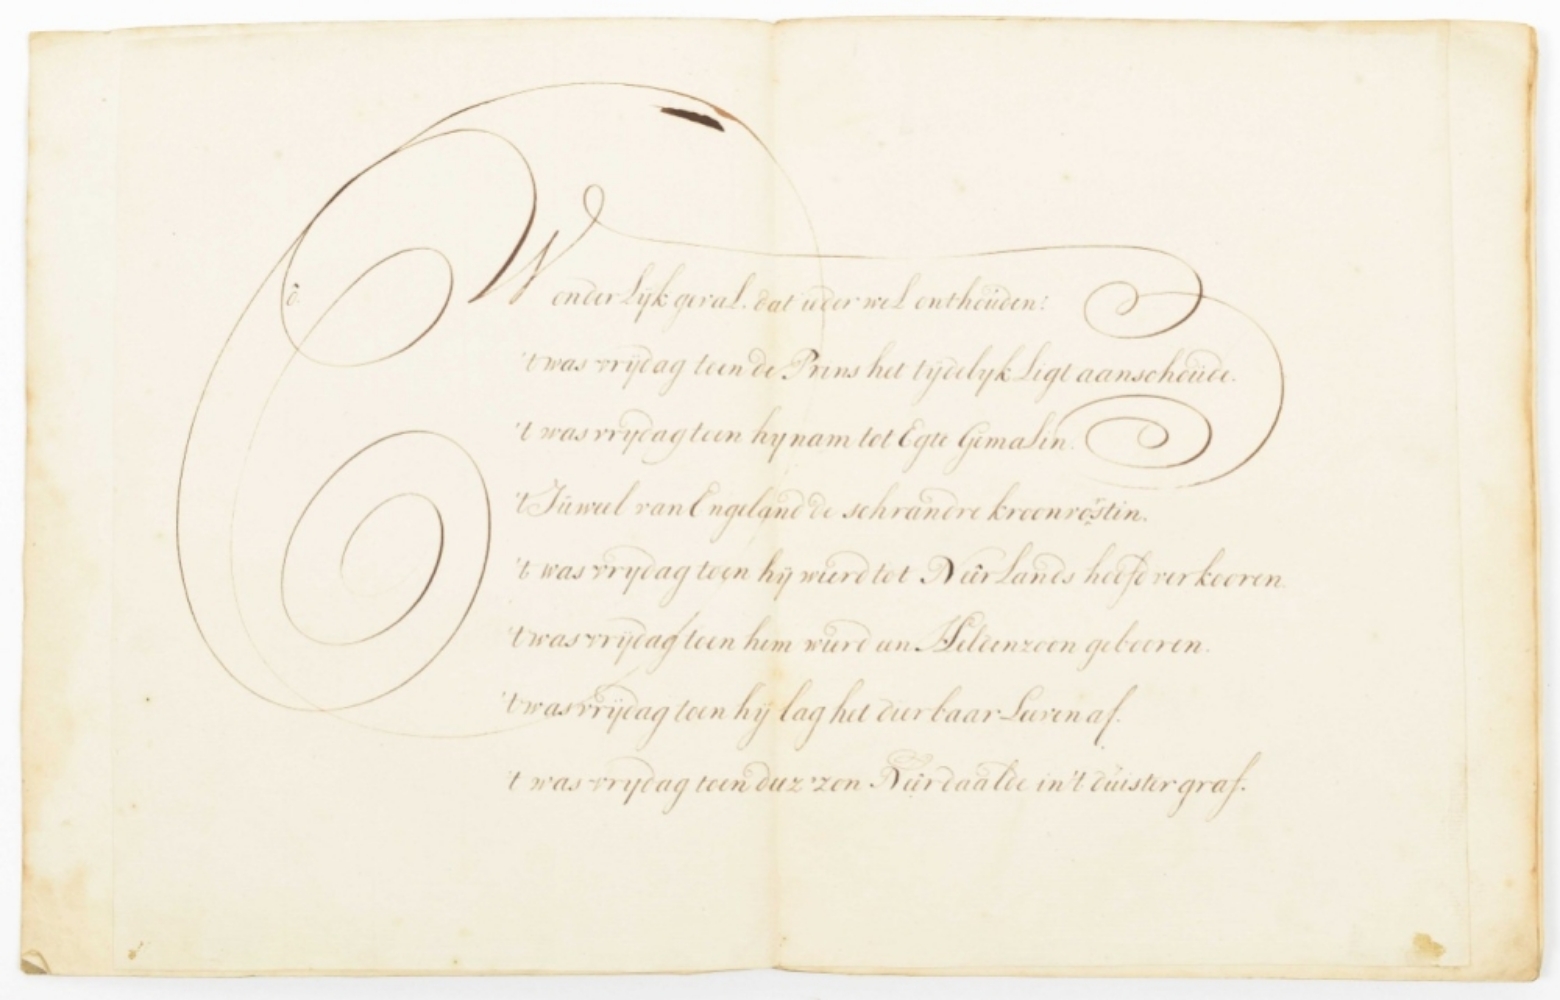 ô Wonderlijk geval. dat ieder wel onthoúden!
't was vrijdag toen de Prins het tijdelyk Ligt aanschoúde.
't was vrydag toen hy nam tot Egte Gemalin.
't Júweel van Engeland de schrandre kroonvostin.
't was vrydag toen hÿ wierd tot Neêrlands hoofd verkooren.
't was vrijdag toen hem wierd een Heldenzoon gebooren.
't was vrijdag toen hÿ lag het dierbaar Leeven af.
't was vrydag toen deez' zon Neêrdaalde in't dúister graf.